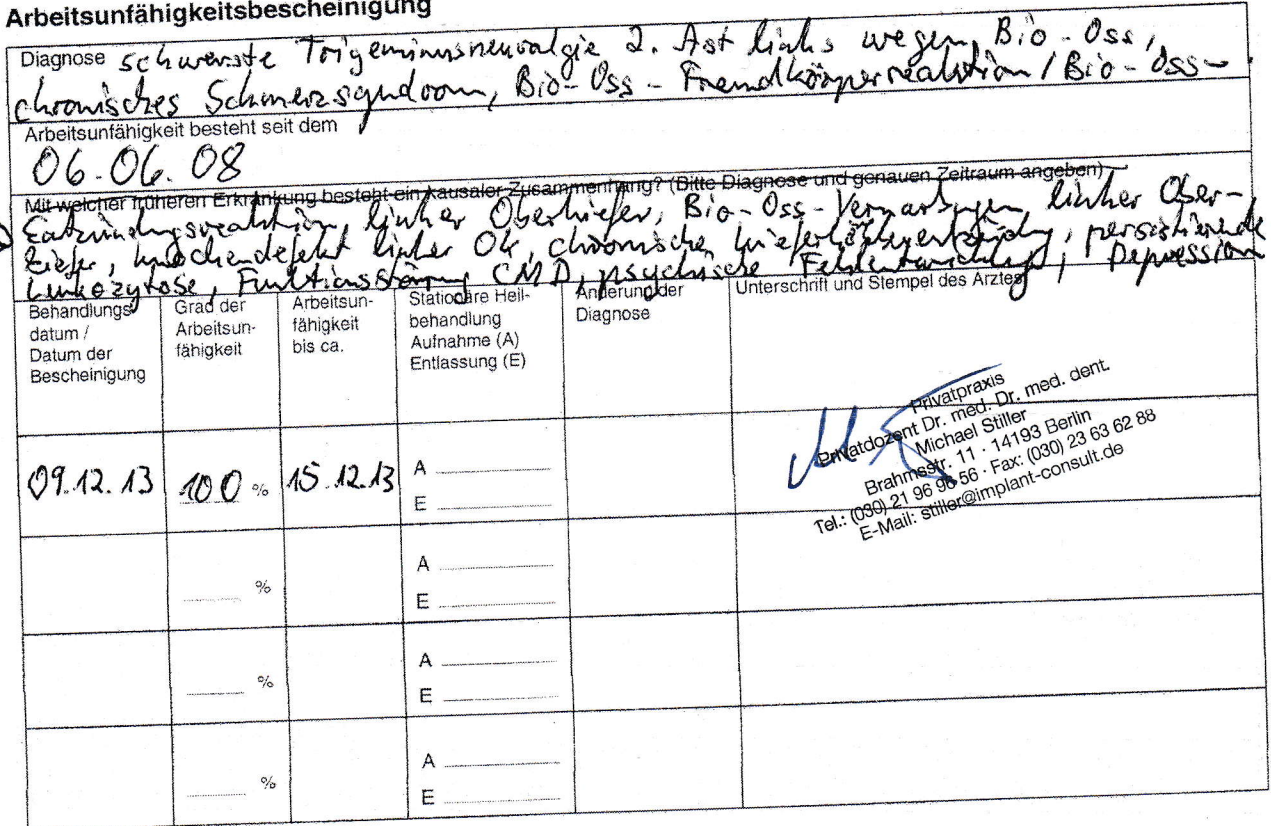 Arbeitsunfähigkeitsbescheinigung
Diagnose schwerste Trigeminusneuralgie 2. Ast links wegen Bio-Oss,
chronisches Schmerzsyndrom, Bio-Oss-Fremdkörperreaktion/Bio-Oss-
Arbeitsunfähigkeit besteht seit dem
06.06.08
Mit welcher früheren Erkrankung besteht ein kausaler Zusammenhang? (Bitte Diagnose und genauen Zeitraum angeben)
Entzündungsreaktion linker Oberkiefer, Bio-Oss-Vernarbungen linker Ober-
kiefer, Knochendefekt linker OK, chronische Kieferhöhlenentzündung, persistierende
Leukozytose, Funktionsstörung CMD, psychische Fehlentwicklung, Depression
Behandlungs
datum /
Datum der
Bescheinigung
Grad der
Arbeitsun-
fähigkeit
Arbeitsun-
fähigkeit
bis ca.
Stationäre Heil-
behandlung
Aufnahme (A)
Entlassung (E)
Änderung der
Diagnose
Unterschrift und Stempel des Arztes
Privatpraxis
Privatdozent Dr. med. Dr. med. dent.
Michael Stiller
Brahmsstr. 11 · 14193 Berlin
Tel.: (030) 21 96 96 56 · Fax: (030) 23 63 62 88
E-Mail: stiller@implant-consult.de
09.12.13 100 % 15.12.13 A
E
% A
E
% A
E
% A
E